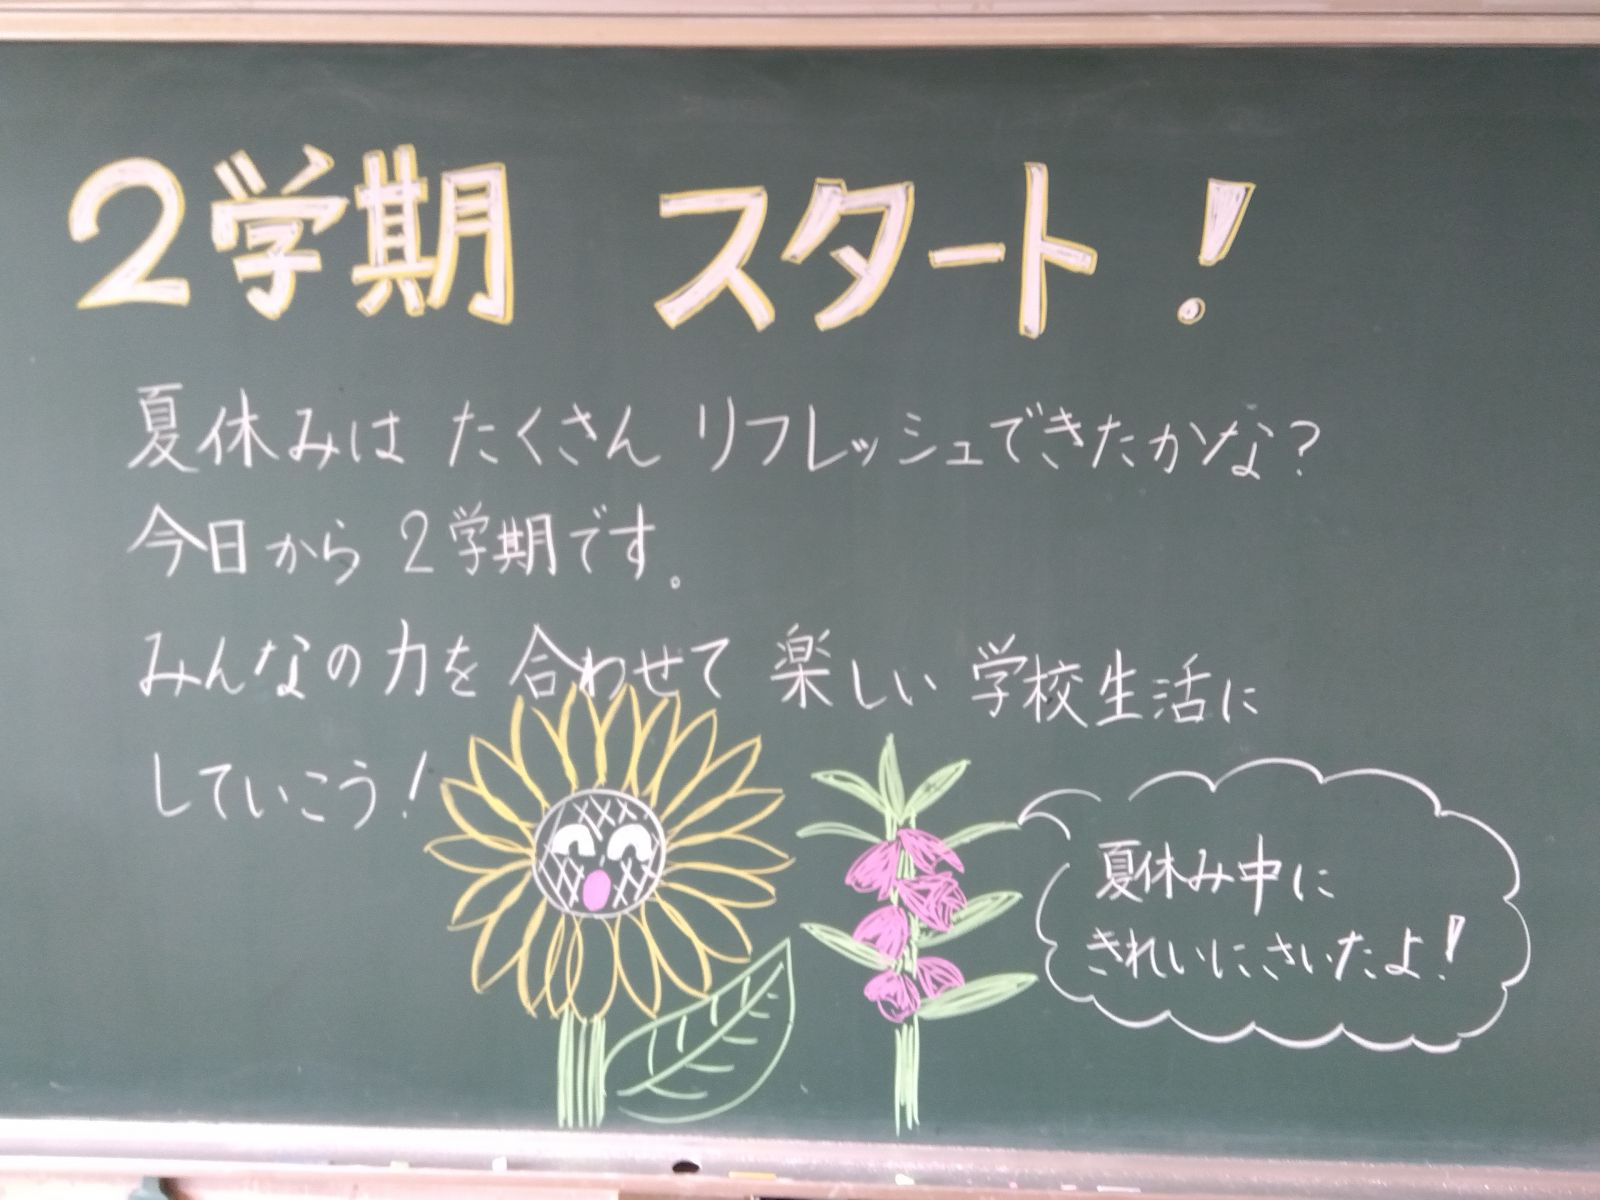 ２学期 スタート！
夏休みは たくさん リフレッシュできたかな？
今日から ２学期です。
みんなの力を 合わせて 楽しい 学校生活に
していこう！
夏休み中に
きれいにさいたよ！